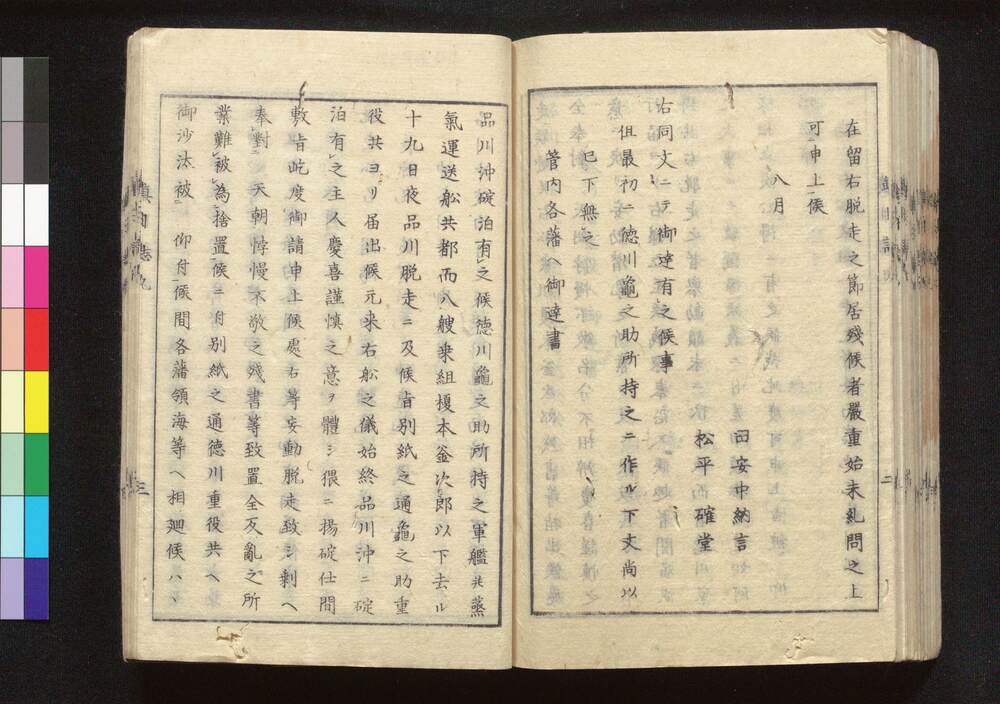 在留右脱走之節居残候者嚴重始末糺問之上
可申上候
八月
田安中納言
松平確堂
右同文ニテ御達有之候事
但最初ニ徳川龜之助所持之ニ作ル下文尚以
已下無之
管内各藩ヘ御達書
二
品川沖碇泊有之候徳川龜之助所持之軍艦并蒸
氣運送船共都而八艘乗組榎本釜次郎以下去ル
十九日夜品川脱走ニ及候旨別紙之通龜之助重
役共ヨリ届出候元来右船之儀始終品川沖ニ碇
泊有之主人慶喜謹慎之意ヲ體シ猥ニ揚碇仕間
敷旨屹度御請申上候處右等妄動脱走致シ剰ヘ
奉對 天朝悖慢不敬之残書等致置全反亂之所
業難被為捨置候ニ付別紙之通徳川重役共ヘ
御沙汰被 仰付候間各藩領海等ヘ相廻候ハヽ
三